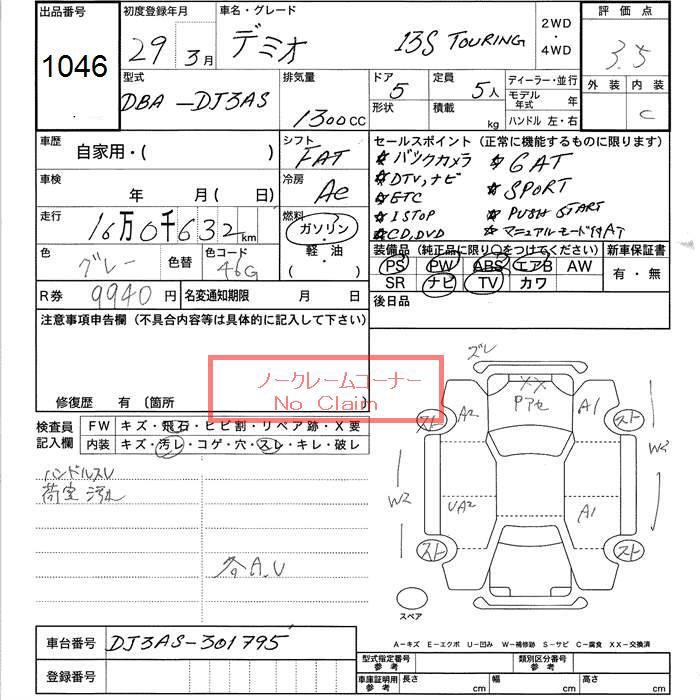 出品番号 初度登録年月 車名・グレード 2WD・4WD 評価点
1046 29年 3月 デミオ 13S TOURING 3.5
型式 排気量 ドア 定員 ディーラー・並行 外装 内装
DBA-DJ3AS 1300cc 5 5人 モデル年式 年 C
形状 積載 kg ハンドル 左・右
車歴 自家用・( ) シフト FAT セールスポイント (正常に機能するものに限ります)
☆バックカメラ ☆6AT
車検 年 月(日) 冷房 Ae ☆DTV,ナビ ☆SPORT
☆ETC
走行 16万0千632km 燃料 ガソリン・軽・油・( ) ☆ISTOP ☆PUSH START
☆CD,DVD ☆マニュアルモード付AT
色 グレー 色替 色コード 46G 装備品 (純正品に限り○をつけてください) 新車保証書
PS PW ABS エアB AW 有・無
R券 9940円 名変通知期限 月 日 SR ナビ TV カワ
後日品
注意事項申告欄 (不具合内容等は具体的に記入して下さい)
ノークレームコーナー
No Claim
修復歴 有 (箇所
検査員記入欄 FW キズ・飛石・ヒビ割・リペア跡・X要
内装 キズ・汚レ・コゲ・穴・スレ・キレ・破レ
ハンドルスレ
荷室汚れ
各A.U
ズレ
XX
Pアセ
スト A2 A1 スト
W2 W2
UA2 A1
スト スト
スペア
A-キズ E-エクボ U-凹み W-補修跡 S-サビ C-腐食 XX-交換済
車台番号 DJ3AS-301795
型式指定番号 参考 類別区分番号 参考
登録番号
車庫証明用 参考 長さ cm 幅 cm 高さ cm